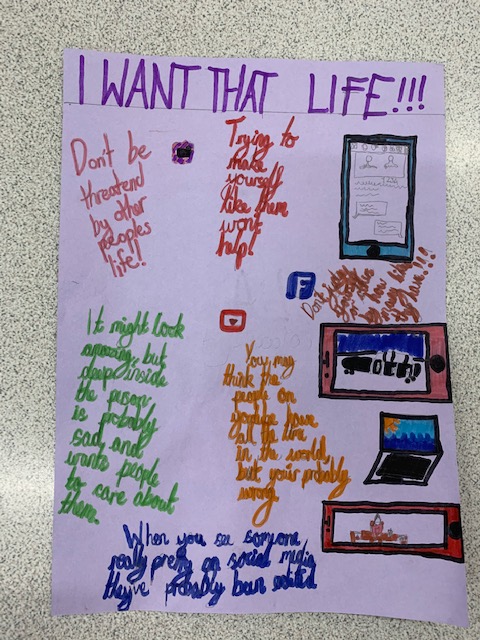 I WANT THAT LIFE!!!
Don't be
threatend
by other
peoples
life!
Trying to
make
yourself
like them
wont
help!
F
Don't
how
many
they have!!!
It might look
amazing, but
deep inside
the person
is probably
sad, and
wants people
to care about
them.
You may
think the
people on
youtube have
all the
in the world,
but your probably
wrong.
When you see someone
really pretty on social media
they've probably been edited